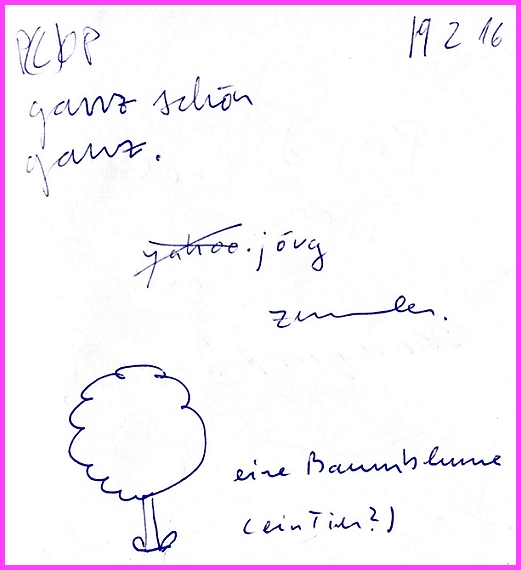 19 2 16
ganz schön
ganz.
yahoo.jörg
eine Baumblume
(ein Tier?)